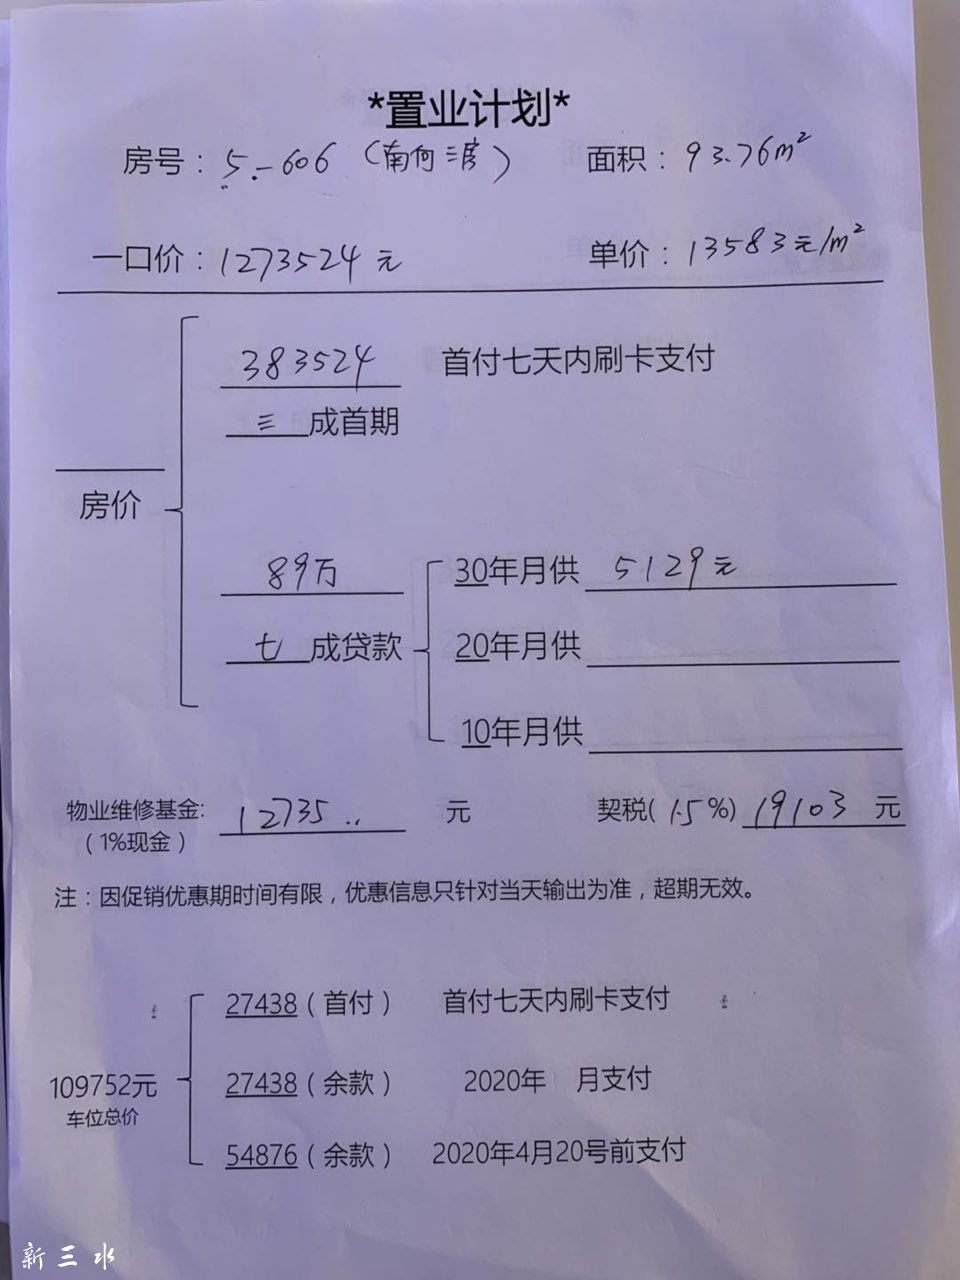 *置业计划*
房号：5.-606（南向三房） 面积：93.76m²
一口价：1273524元 单价：13583元/m²
383524 首付七天内刷卡支付
三成首期
房价
89万 30年月供 5129元
七成贷款 20年月供
10年月供
物业维修基金: 12735.. 元 契税(1.5%) 19103 元
（1%现金）
注：因促销优惠期时间有限，优惠信息只针对当天输出为准，超期无效。
27438（首付） 首付七天内刷卡支付
109752元 27438（余款） 2020年 月支付
车位总价
54876（余款） 2020年4月20号前支付
新三水